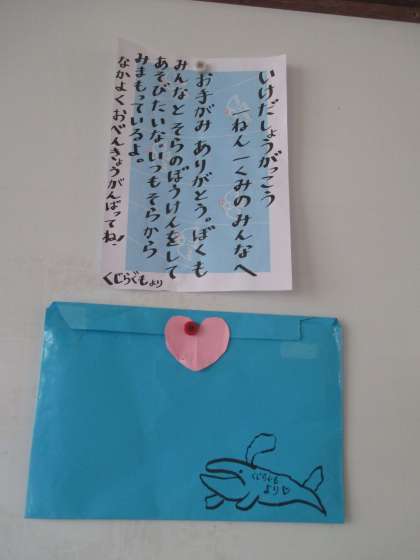 いけだしょうがっこう
一ねん一くみのみんなへ
お手がみありがとう。ぼくも
みんなと そらのぼうけんをして
あそびたいな。いつもそらから
みまもっているよ。
なかよく おべんきょうがんばってね!
くじらぐもより
くじらぐも
より♡